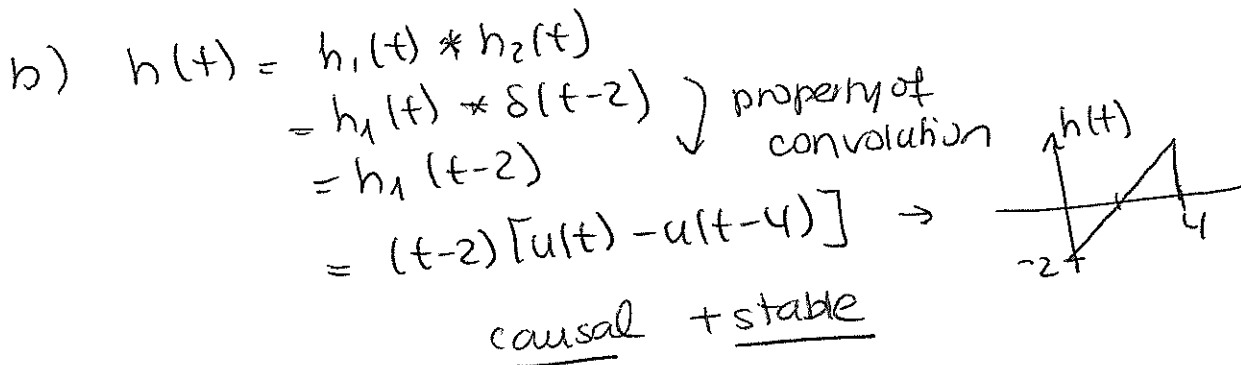 b) h(t) = h₁(t) * h₂(t)
= h₁(t) * δ(t-2) property of
convolution
= h₁(t-2)
= (t-2)[u(t) - u(t-4)] →
h(t)
4
-2
causal + stable